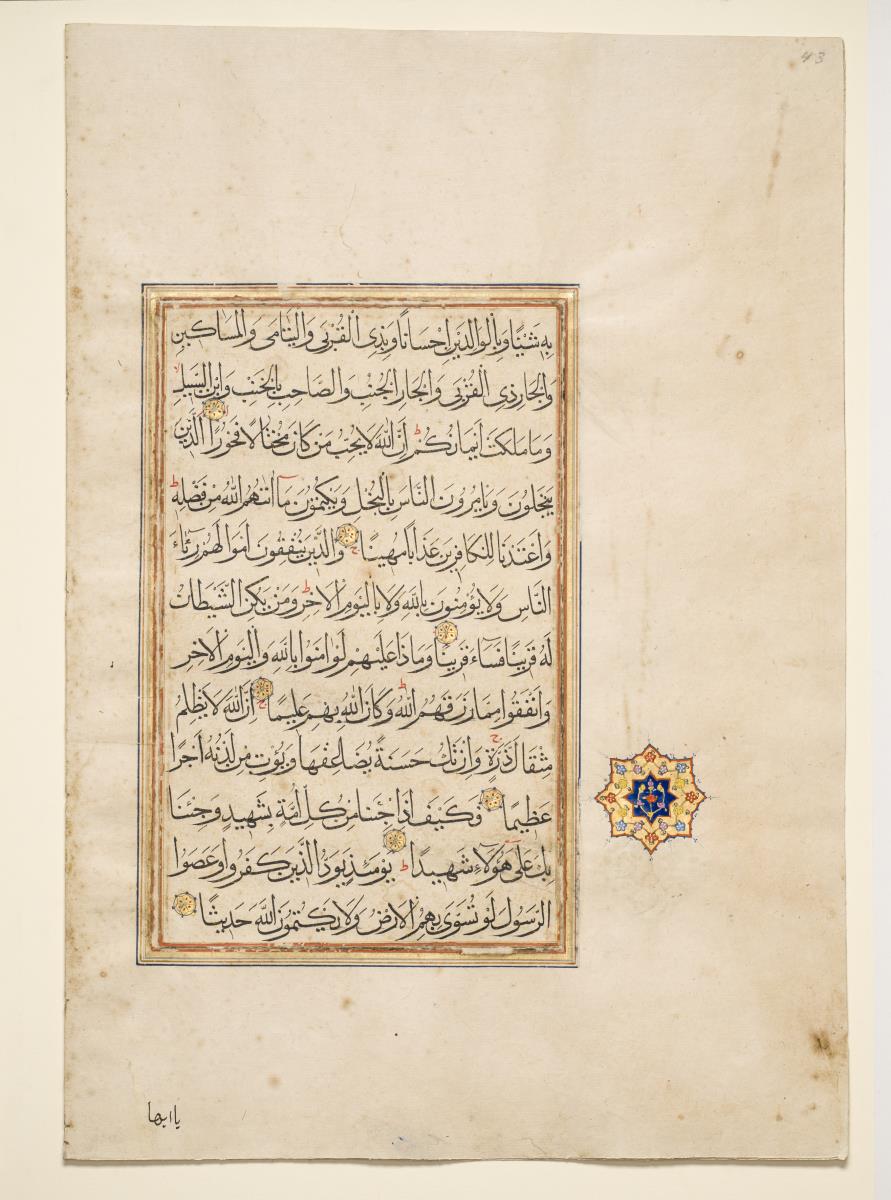 43
بِهِ شَيْئًا وَبِالْوَالِدَيْنِ اِحْسَانًا وَبِذِى الْقُرْبَى وَالْيَتَامَى وَالْمَسَاكِينِ
وَالْجَارِ ذِى الْقُرْبَى وَالْجَارِ الْجُنُبِ وَالصَّاحِبِ بِالْجَنْبِ وَابْنِ السَّبِيلِ
وَمَا مَلَكَتْ اَيْمَانُكُمْ ط اِنَّ اللهَ لَا يُحِبُّ مَنْ كَانَ مُخْتَالًا فَخُورًا الَّذِينَ
يَبْخَلُونَ وَيَامُرُونَ النَّاسَ بِالْبُخْلِ وَيَكْتُمُونَ مَآ اٰتٰهُمُ اللهُ مِنْ فَضْلِهِ ط
وَاَعْتَدْنَا لِلْكَافِرِينَ عَذَابًا مُهِينًا ج وَالَّذِينَ يُنْفِقُونَ اَمْوَالَهُمْ رِئَآءَ
النَّاسِ وَلَا يُؤْمِنُونَ بِاللهِ وَلَا بِالْيَوْمِ الْاٰخِرِ ط وَمَنْ يَكُنِ الشَّيْطَانُ
لَهُ قَرِينًا فَسَآءَ قَرِينًا وَمَاذَا عَلَيْهِمْ لَوْ اٰمَنُوا بِاللهِ وَالْيَوْمِ الْاٰخِرِ
وَاَنْفَقُوا مِمَّا رَزَقَهُمُ اللهُ ط وَكَانَ اللهُ بِهِمْ عَلِيمًا ج اِنَّ اللهَ لَا يَظْلِمُ
مِثْقَالَ ذَرَّةٍ ج وَاِنْ تَكُ حَسَنَةً يُضَاعِفْهَا وَيُؤْتِ مِنْ لَدُنْهُ اَجْرًا
عَظِيمًا فَكَيْفَ اِذَا جِئْنَا مِنْ كُلِّ اُمَّةٍ بِشَهِيدٍ وَجِئْنَا
بِكَ عَلَى هٰٓؤُلَآءِ شَهِيدًا ط يَوْمَئِذٍ يَوَدُّ الَّذِينَ كَفَرُوا وَعَصَوُا
الرَّسُولَ لَوْ تُسَوَّى بِهِمُ الْاَرْضُ وَلَا يَكْتُمُونَ اللهَ حَدِيثًا
يا ايها